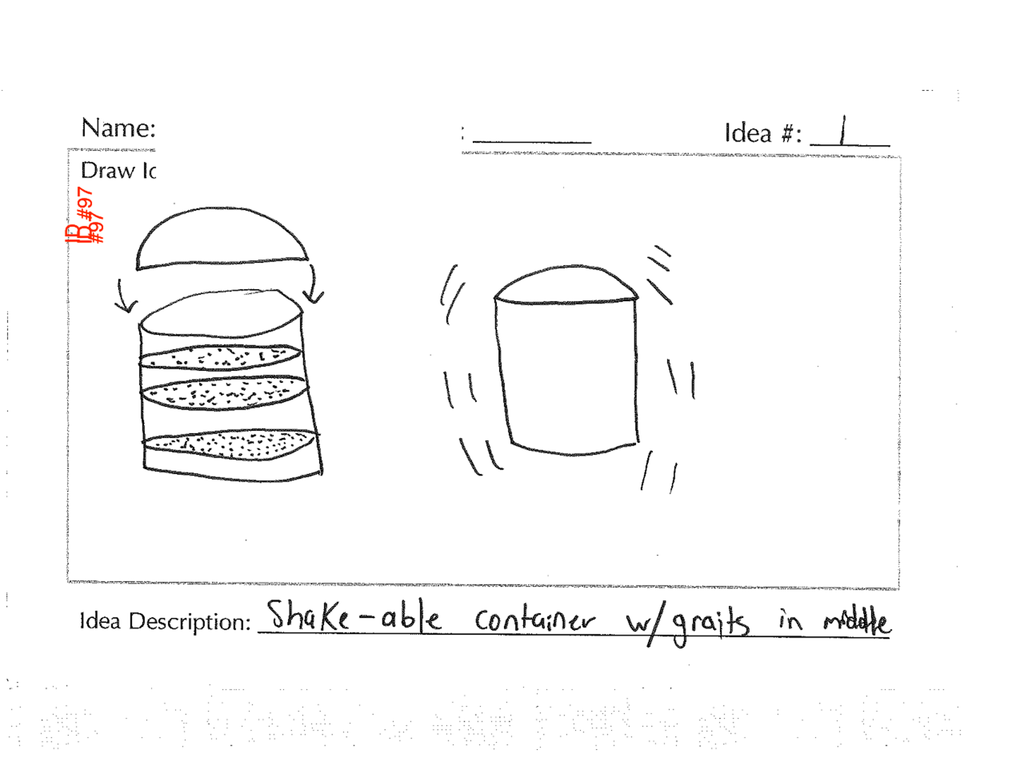 Name:
: Idea #: 1
Draw Id
ID #97
ID #97
Idea Description: Shake-able container w/ graits in middle